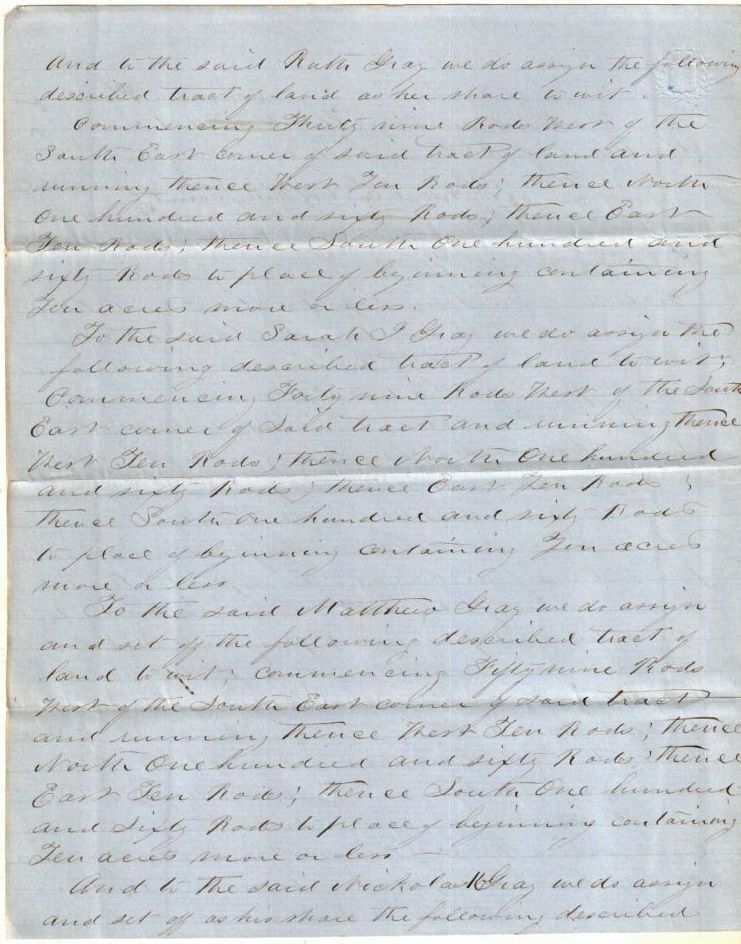 And to the said Ruth Gray we do assign the following
described tract of land as her share to wit.
Commencing Thirty nine Rods West of the
South East corner of said tract of land and
running thence West Ten Rods; thence North
One hundred and sixty Rods; thence East
Ten Rods; thence South One hundred and
sixty Rods to place of beginning containing
Ten acres more or less.
To the said Sarah J Gray we do assign the
following described tract of land to wit;
Commencing Forty nine Rods West of the South
East corner of said tract and running thence
West Ten Rods; thence North One hundred
and sixty Rods; thence East Ten Rods;
thence South One hundred and sixty Rods
to place of beginning containing Ten acres
more or less
To the said Matthew Gray we do assign
and set off the following described tract of
land to wit; commencing Fifty nine Rods
West of the South East corner of said tract
and running thence West Ten Rods; thence
North One hundred and sixty Rods; thence
East Ten Rods; thence South One hundred
and Sixty Rods to place of beginning containing
Ten acres more or less
And to the said Nickolas Gray we do assign
and set off as his share the following described